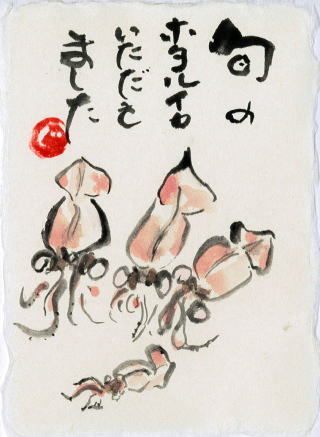 旬の
ホタルイカ
いただき
ました